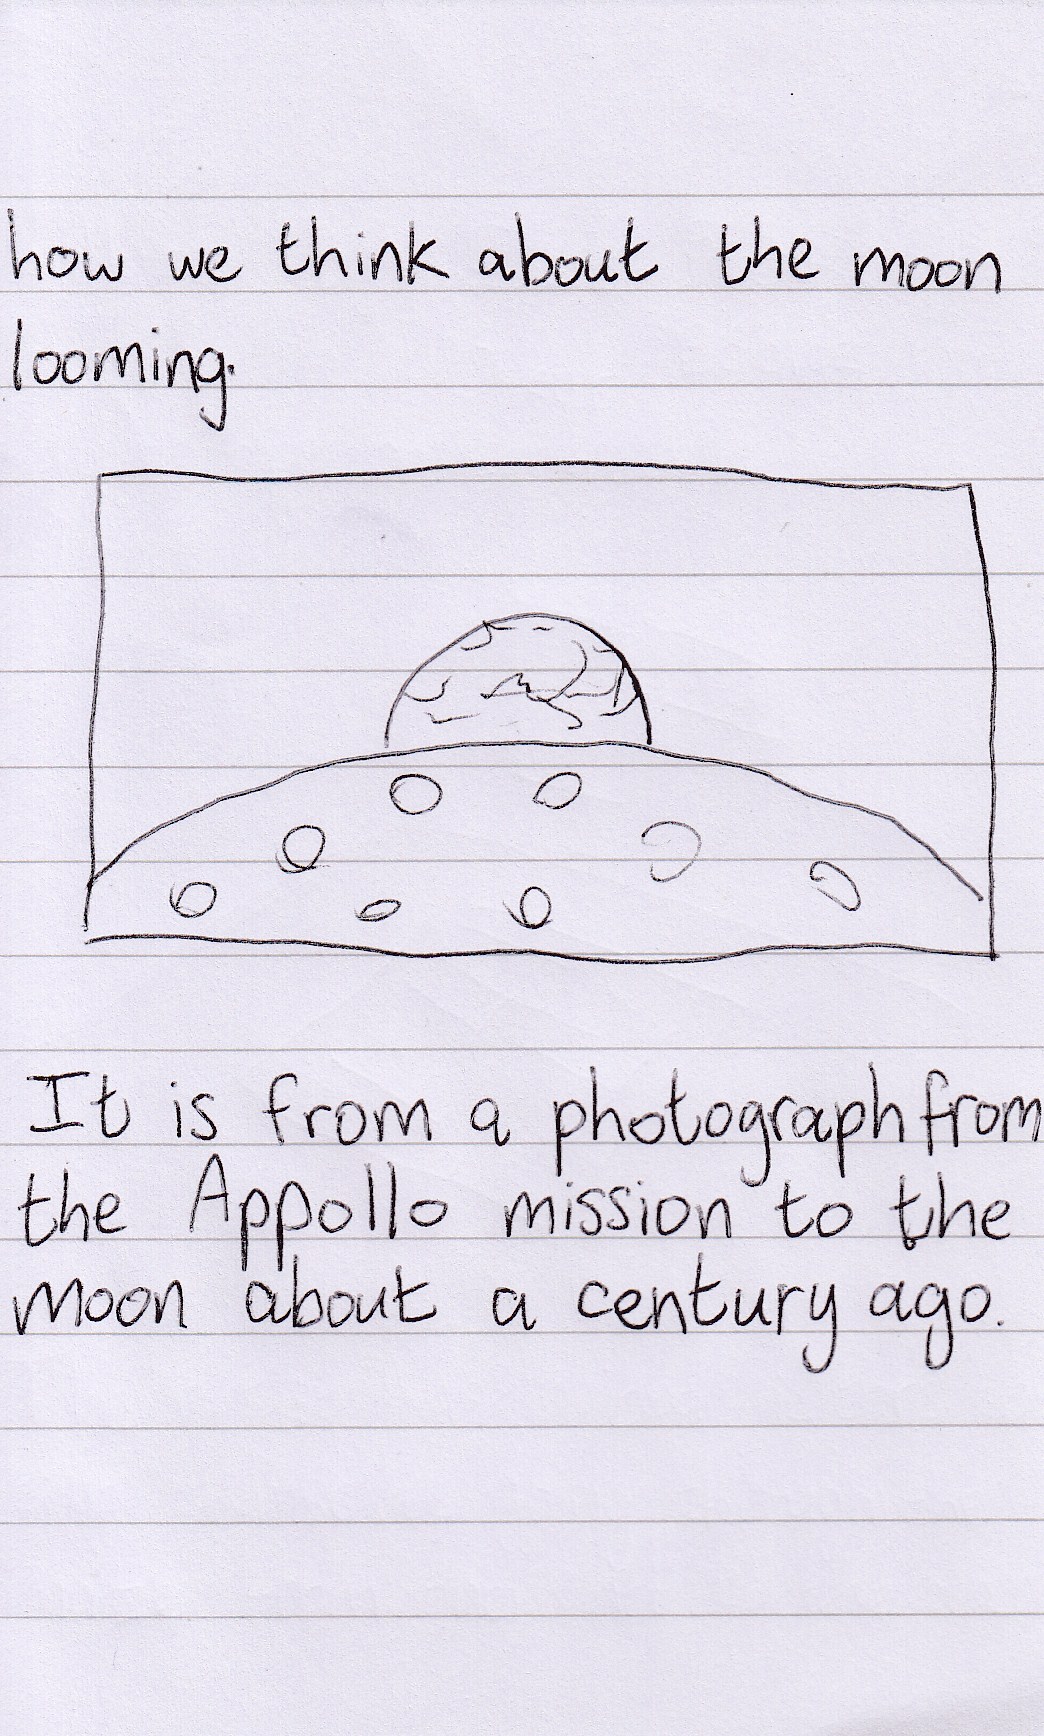 how we think about the moon
looming.
It is from a photograph from
the Appollo mission to the
moon about a century ago.